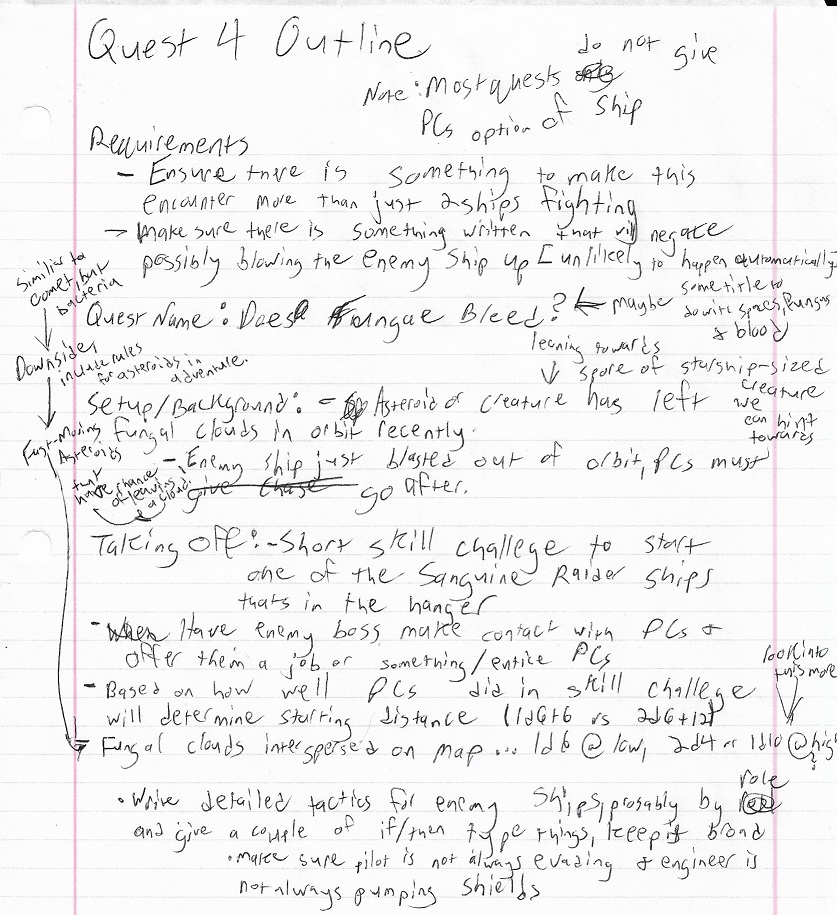 Quest 4 Outline
Note: Most quests do not give
PCs option of ship
Requirements
- Ensure there is something to make this
encounter more than just 2 ships fighting
→ Make sure there is something written that will negate
possibly blowing the enemy ship up [unlikely to happen automatically]
Similar to
comet, but
bacteria
Quest Name: Does Fungae Bleed? ← maybe some title to
do with spores, fungus
& blood
Downside,
include rules
for asteroids in
adventure.
leaning towards
↓ spore of starship-sized
creature
we
can hint
towards
Setup/Background: - Asteroid or creature has left
fungal clouds in orbit recently.
Fast-Moving
Asteroids
that
have chance
of leaving
a cloud.
- Enemy ship just blasted out of orbit, PCs must
give chase go after.
Taking Off: - Short skill challege to start
one of the Sanguine Raider ships
thats in the hanger
- When Have enemy boss make contact with PCs &
offer them a job or something/entice PCs
look into
this more
- Based on how well PCs did in skill challenge
will determine starting distance (1d6+6 vs 2d6+12)
- Fungal clouds interspersed on map... 1d6 @ low, 2d4 or 1d10 @ high
?
• Write detailed tactics for enemy ships, probably by role
and give a couple of if/then type things, keep it broad
• make sure pilot is not always evading & engineer is
not always pumping shields